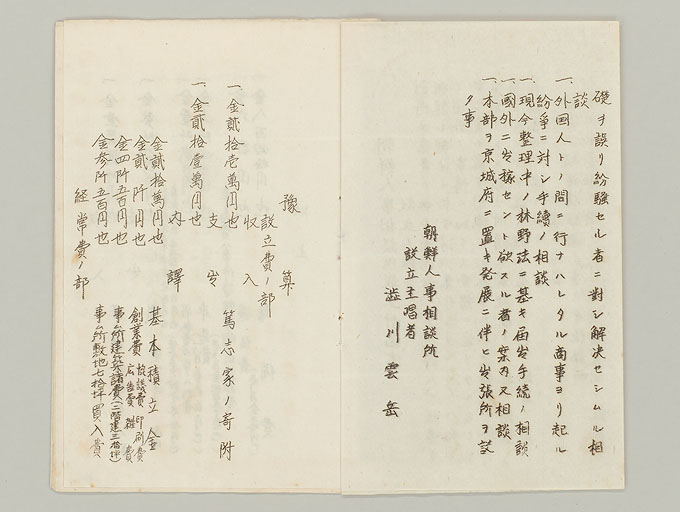 礎ヲ誤リ紛騒セル者ニ對シ解決セシムル相
談
一、外国人トノ間ニ行ナハレタル商事ヨリ起ル
紛爭ニ対シ手續ノ相談
一、現今整理中ノ林野法ニ基キ届出手続ノ相談
一、國外ニ出稼セント欲スル者ノ案内又相談
一、本部ヲ京城府ニ置キ発展ニ伴ヒ出張所ヲ設
ク事
朝鮮人事相談所
設立主唱者
澁川雲岳
豫算
設立費ノ部
收入
一、金貳拾壱萬円也 篤志家ノ寄附
支出
一、金貳拾壹萬円也
内譯
金貳拾萬円也 基本積立金
金貳阡円也 創業費 仮設費 印刷費
広告費 雑費
金四阡五百円也 事ム所建築諸費(二階建三拾坪)
金参阡五百円也 事ム所敷地七拾坪買入費
経常費ノ部